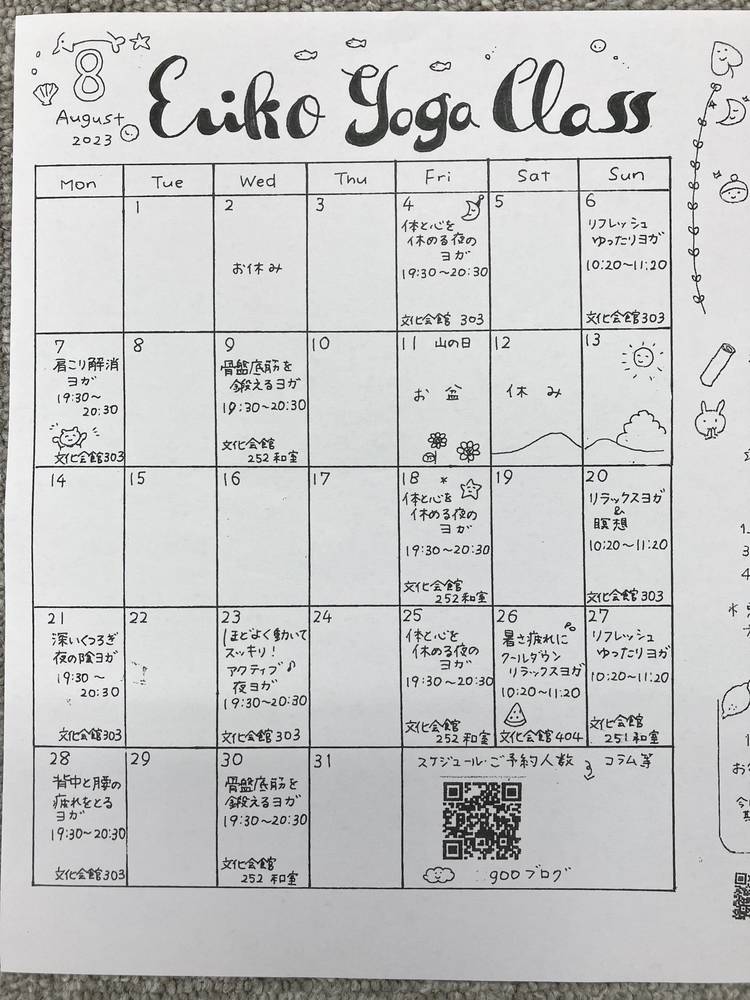 8
August
2023
Eriko Yoga Class
Mon Tue Wed Thu Fri Sat Sun
1
2
お休み
3
4
体と心を
休める夜の
ヨガ
19:30〜20:30
文化会館 303
5
6
リフレッシュ
ゆったりヨガ
10:20〜11:20
文化会館303
7
肩こり解消
ヨガ
19:30〜
20:30
文化会館303
8
9
骨盤底筋を
鍛えるヨガ
19:30〜20:30
文化会館
252和室
10
11 山の日
12
13
お盆休み
14
15
16
17
18 *
体と心を
休める夜の
ヨガ
19:30〜20:30
文化会館
252和室
19
20
リラックスヨガ
&
瞑想
10:20〜11:20
文化会館303
21
深いくつろぎ
夜の陰ヨガ
19:30〜
20:30
文化会館303
22
23
ほどよく動いて
スッキリ!
アクティブ♪
夜ヨガ
19:30〜20:30
文化会館303
24
25
体と心を
休める夜の
ヨガ
19:30〜20:30
文化会館
252和室
26
暑さ疲れに
クールダウン
リラックスヨガ
10:20〜11:20
文化会館404
27
リフレッシュ
ゆったりヨガ
10:20〜11:20
文化会館
251和室
28
背中と腰の
疲れをとる
ヨガ
19:30〜20:30
文化会館303
29
30
骨盤底筋を
鍛えるヨガ
19:30〜20:30
文化会館
252和室
31
スケジュール・ご予約人数 コラム等
gooブログ